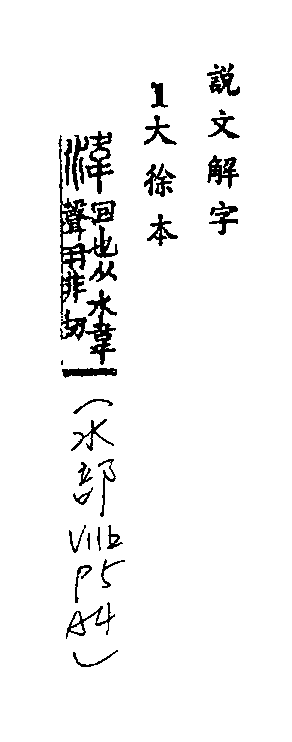 説文解字
1大徐本
湋 回也从水韋
聲羽非切
(水部VIIb P5 A4)